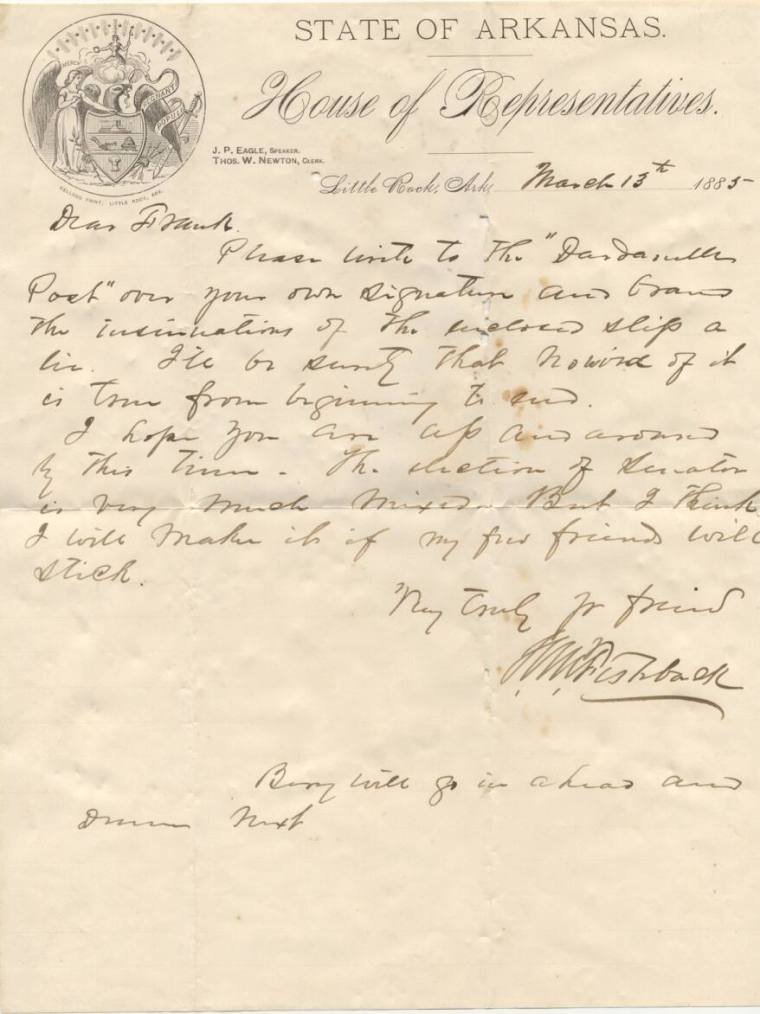 STATE OF ARKANSAS.
House of Representatives.
MERCY
REGNANT
POPULI
J. P. EAGLE, SPEAKER.
THOS. W. NEWTON, CLERK.
KELLOGG PRINT, LITTLE ROCK, ARK.
Little Rock, Ark. March 13th 1885
Dear Frank.
Please write to the "Dardanelle
Post" over your own signature and brand
the insinuations of the enclosed slip a
lie. I'll be surety that no word of it
is true from beginning to end.
I hope you are up and around
by this time - The election of Senator
is very much mixed. But I think
I will make it if my few friends will
stick.
Very truly yr friend
W M Fishback
Berry will go in ahead and
Dunn next